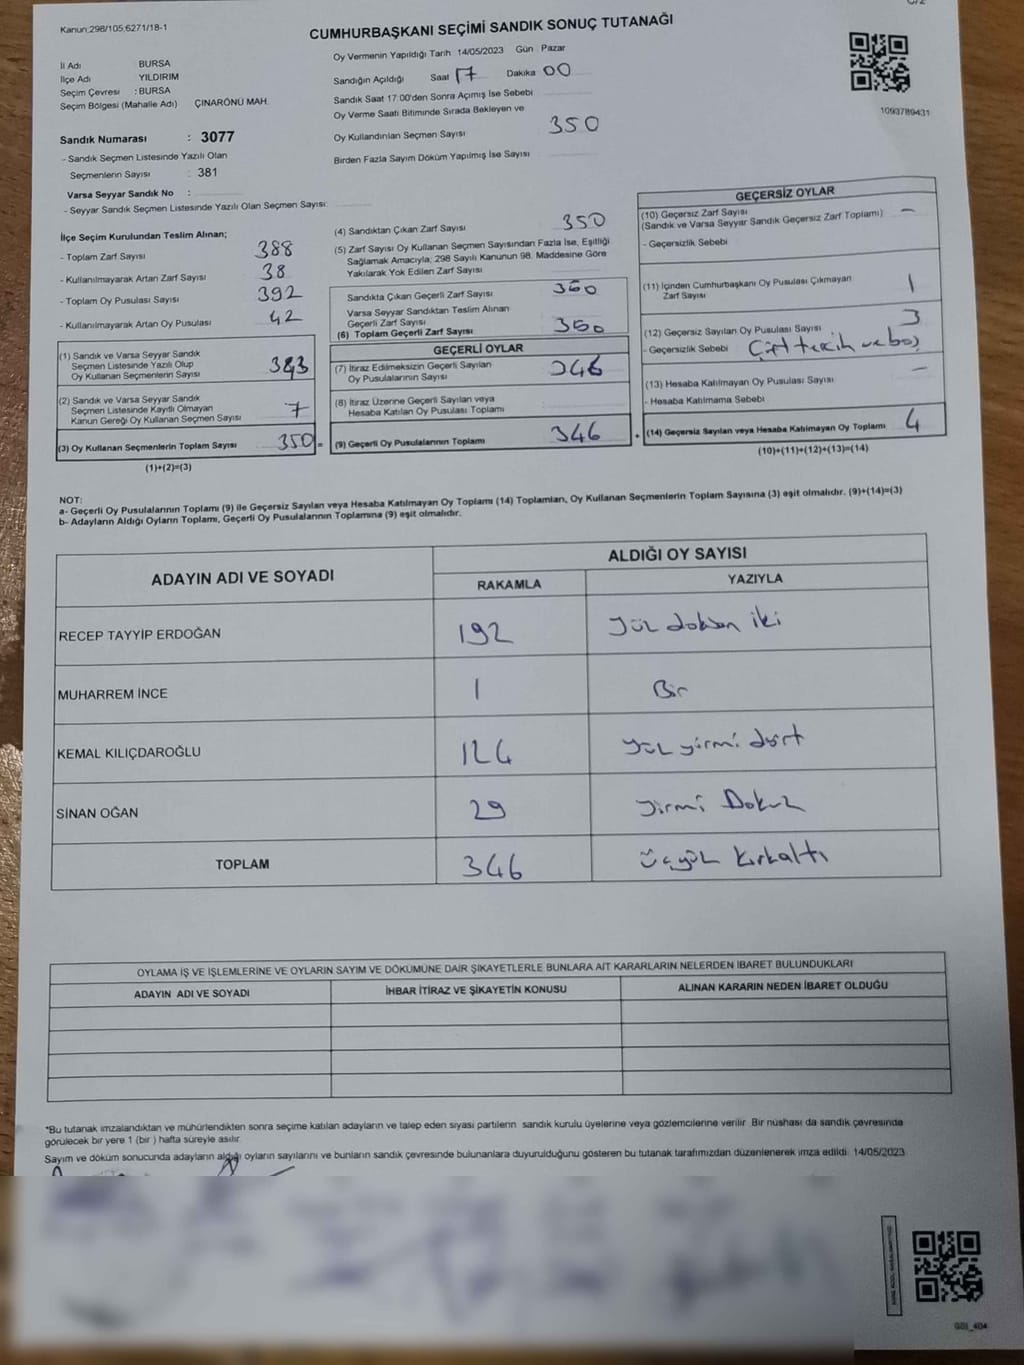 Kanun:298/105:6271/18-1
CUMHURBAŞKANI SEÇİMİ SANDIK SONUÇ TUTANAĞI
İl Adı BURSA
İlçe Adı YILDIRIM
Seçim Çevresi : BURSA
Seçim Bölgesi (Mahalle Adı) ÇINARÖNÜ MAH.
Sandık Numarası : 3077
- Sandık Seçmen Listesinde Yazılı Olan
Seçmenlerin Sayısı : 381
Varsa Seyyar Sandık No :
- Seyyar Sandık Seçmen Listesinde Yazılı Olan Seçmen Sayısı:
Oy Vermenin Yapıldığı Tarih 14/05/2023 Gün Pazar
Sandığın Açıldığı Saat 17 Dakika 00
Sandık Saat 17:00'den Sonra Açımış İse Sebebi
Oy Verme Saati Bitiminde Sırada Bekleyen ve
Oy Kullandırılan Seçmen Sayısı 350
Birden Fazla Sayım Döküm Yapılmış İse Sayısı
1093789431
İlçe Seçim Kurulundan Teslim Alınan;
- Toplam Zarf Sayısı 388
- Kullanılmayarak Artan Zarf Sayısı 38
- Toplam Oy Pusulası Sayısı 392
- Kullanılmayarak Artan Oy Pusulası 42
(1) Sandık ve Varsa Seyyar Sandık
Seçmen Listesinde Yazılı Olup
Oy Kullanan Seçmenlerin Sayısı
(2) Sandık ve Varsa Seyyar Sandık
Seçmen Listesinde Kayıtlı Olmayan
Kanun Gereği Oy Kullanan Seçmen Sayısı 7
(3) Oy Kullanan Seçmenlerin Toplam Sayısı 350 =
(1)+(2)=(3)
(4) Sandıktan Çıkan Zarf Sayısı 350
(5) Zarf Sayısı Oy Kullanan Seçmen Sayısından Fazla İse, Eşitliği
Sağlamak Amacıyla; 298 Sayılı Kanunun 98. Maddesine Göre
Yakılarak Yok Edilen Zarf Sayısı
Sandıkta Çıkan Geçerli Zarf Sayısı 350
Varsa Seyyar Sandıktan Teslim Alınan
Geçerli Zarf Sayısı
(6) Toplam Geçerli Zarf Sayısı 350
GEÇERLİ OYLAR
(7) İtiraz Edilmeksizin Geçerli Sayılan
Oy Pusulalarının Sayısı 346
(8) İtiraz Üzerine Geçerli Sayılan veya
Hesaba Katılan Oy Pusulası Toplamı
(9) Geçerli Oy Pusulalarının Toplamı 346 +
GEÇERSİZ OYLAR
(10) Geçersiz Zarf Sayısı —
(Sandık ve Varsa Seyyar Sandık Geçersiz Zarf Toplamı)
- Geçersizlik Sebebi
(11) İçinden Cumhurbaşkanı Oy Pusulası Çıkmayan
Zarf Sayısı 1
(12) Geçersiz Sayılan Oy Pusulası Sayısı 3
- Geçersizlik Sebebi Çift tercih ve boş
(13) Hesaba Katılmayan Oy Pusulası Sayısı —
- Hesaba Katılmama Sebebi
(14) Geçersiz Sayılan veya Hesaba Katılmayan Oy Toplamı 4
(10)+(11)+(12)+(13)=(14)
NOT:
a- Geçerli Oy Pusulalarının Toplamı (9) ile Geçersiz Sayılan veya Hesaba Katılmayan Oy Toplamı (14) Toplamları, Oy Kullanan Seçmenlerin Toplam Sayısına (3) eşit olmalıdır. (9)+(14)=(3)
b- Adayların Aldığı Oyların Toplamı, Geçerli Oy Pusulalarının Toplamına (9) eşit olmalıdır.
ADAYIN ADI VE SOYADI ALDIĞI OY SAYISI
RAKAMLA YAZIYLA
RECEP TAYYİP ERDOĞAN 192 yüz doksan iki
MUHARREM İNCE 1 Bir
KEMAL KILIÇDAROĞLU 124 yüz yirmi dört
SİNAN OĞAN 29 yirmi Dokuz
TOPLAM 346 üçyüz kırkaltı
OYLAMA İŞ VE İŞLEMLERİNE VE OYLARIN SAYIM VE DÖKÜMÜNE DAİR ŞİKAYETLERLE BUNLARA AİT KARARLARIN NELERDEN İBARET BULUNDUKLARI
ADAYIN ADI VE SOYADI İHBAR İTİRAZ VE ŞİKAYETİN KONUSU ALINAN KARARIN NEDEN İBARET OLDUĞU
*Bu tutanak imzalandıktan ve mühürlendikten sonra seçime katılan adayların ve talep eden siyasi partilerin sandık kurulu üyelerine veya gözlemcilerine verilir. Bir nüshası da sandık çevresinde
görülecek bir yere 1 (bir) hafta süreyle asılır.
Sayım ve döküm sonucunda adayların aldığı oyların sayılarını ve bunların sandık çevresinde bulunanlara duyurulduğunu gösteren bu tutanak tarafımızdan düzenlenerek imza edildi. 14/05/2023